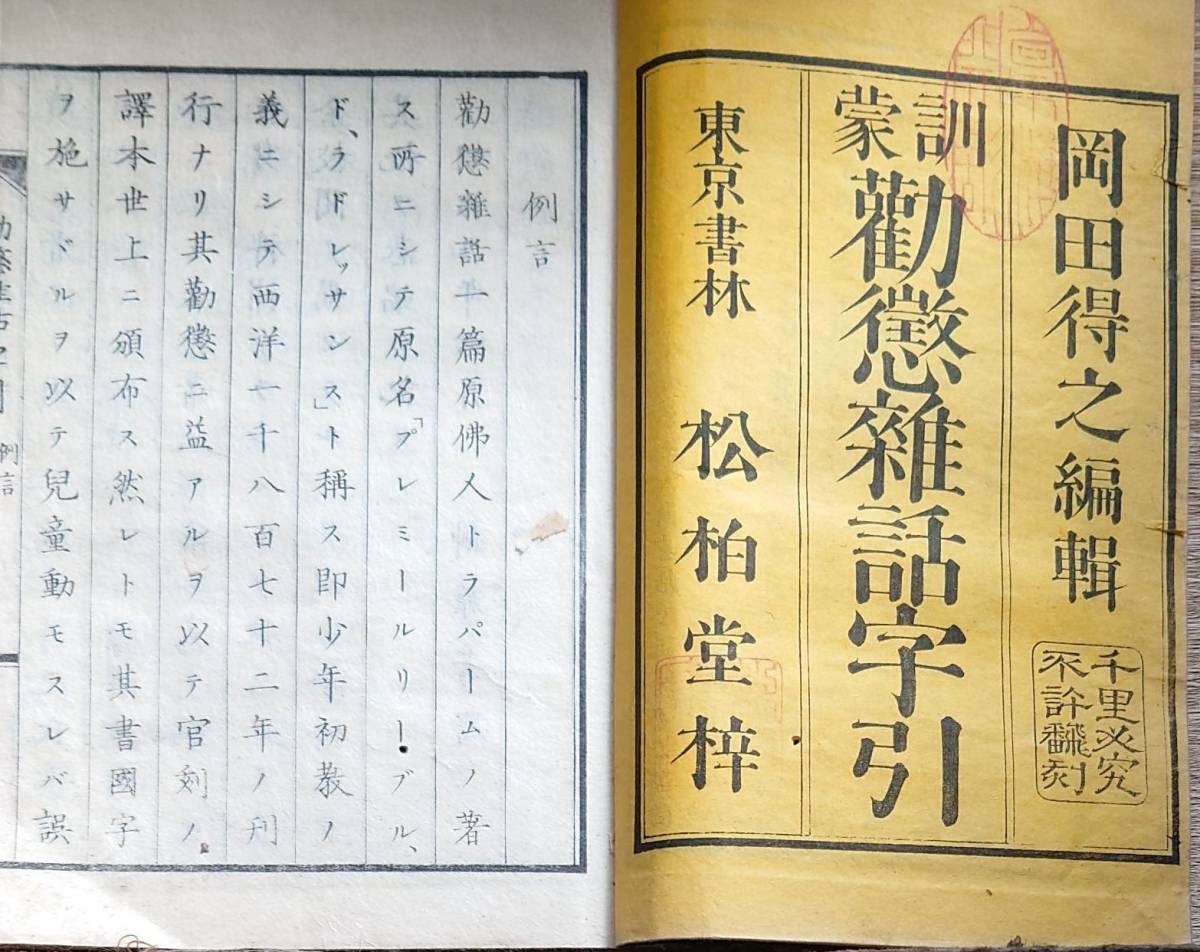 岡田得之編輯
千里必究
不許翻刻
訓蒙勸懲雜話字引
東京書林 松柏堂梓
例言
勸懲雜話一篇原佛人トラパームノ著
ス所ニシテ原名「プレミールリーブル、
ド、ラドレッサンス」ト稱ス即少年初教ノ
義ニシテ西洋一千八百七十二年ノ刊
行ナリ其勸懲ニ益アルヲ以テ官刻ノ
譯本世上ニ頒布ス然レトモ其書國字
ヲ施サヾルヲ以テ兒童動モスレバ誤
例言